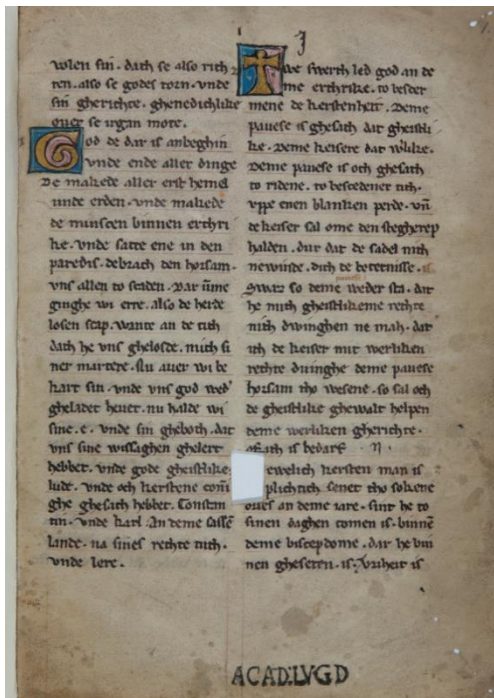 J
wolen sin. dath se also rich
ten. also se godes torn. vnde
sin gherichte. ghenedichlike
ouer se irgan mote.
God de dar is anbeghin
vnde ende aller dinge
De makede aller erst hemel
unde erden. vnde makede
de minscen binnen erthri
ke. vnde satte ene in den
paredis. debrach den horsam.
vns allen to scaden. Dar vm̄e
ginghe wi erre. also de herde
losen scap. wante an de tith
dath he vns ghelosde. mith si
ner martere. Nu auer wi be
kart sin. vnde vns god wed'
gheladet heuet. nu halde wi
sine. e. vnde sin gheboth. dat
vns sine wissaghen ghelert
hebbet. vnde gode gheistlike
lude. vnde och kerstene coni
ghe ghesath hebbet. Constan
tin. vnde karl. An deme sassē
lande. na sines rechte tuth.
vnde lere.
Twe swerth led god an de
me erthrike. to besder
mene de kerstenheit. Deme
pauese is ghesath dat gheistli
ke. Deme keisere dat wlike.
Deme pauese is och ghesath
to ridene. to bescedener tith.
vppe enen blanken perde. vn̄
de keiser sal ome den stegherep
halden. dur dat de sadel nith
newinde. dith de botetnisse.
Swaz so deme weder sta. dat
he mith gheistlikeme rechte
nith dwinghen ne mah. dat
ith de keiser mit werliken
rechte duinghe deme pauese
horsam tho wesene. so sal och
de gheistlike ghewalt helpen
deme werliken gherichte.
of ath is bedarf
ewelich kersten man is
plichtich senet tho sokene
dries an deme iare. sint he to
sinen daghen comen is. binnē
deme biscepdome. dar he bin
nen gheseten. is. vriheit is
ACAD: LVGD